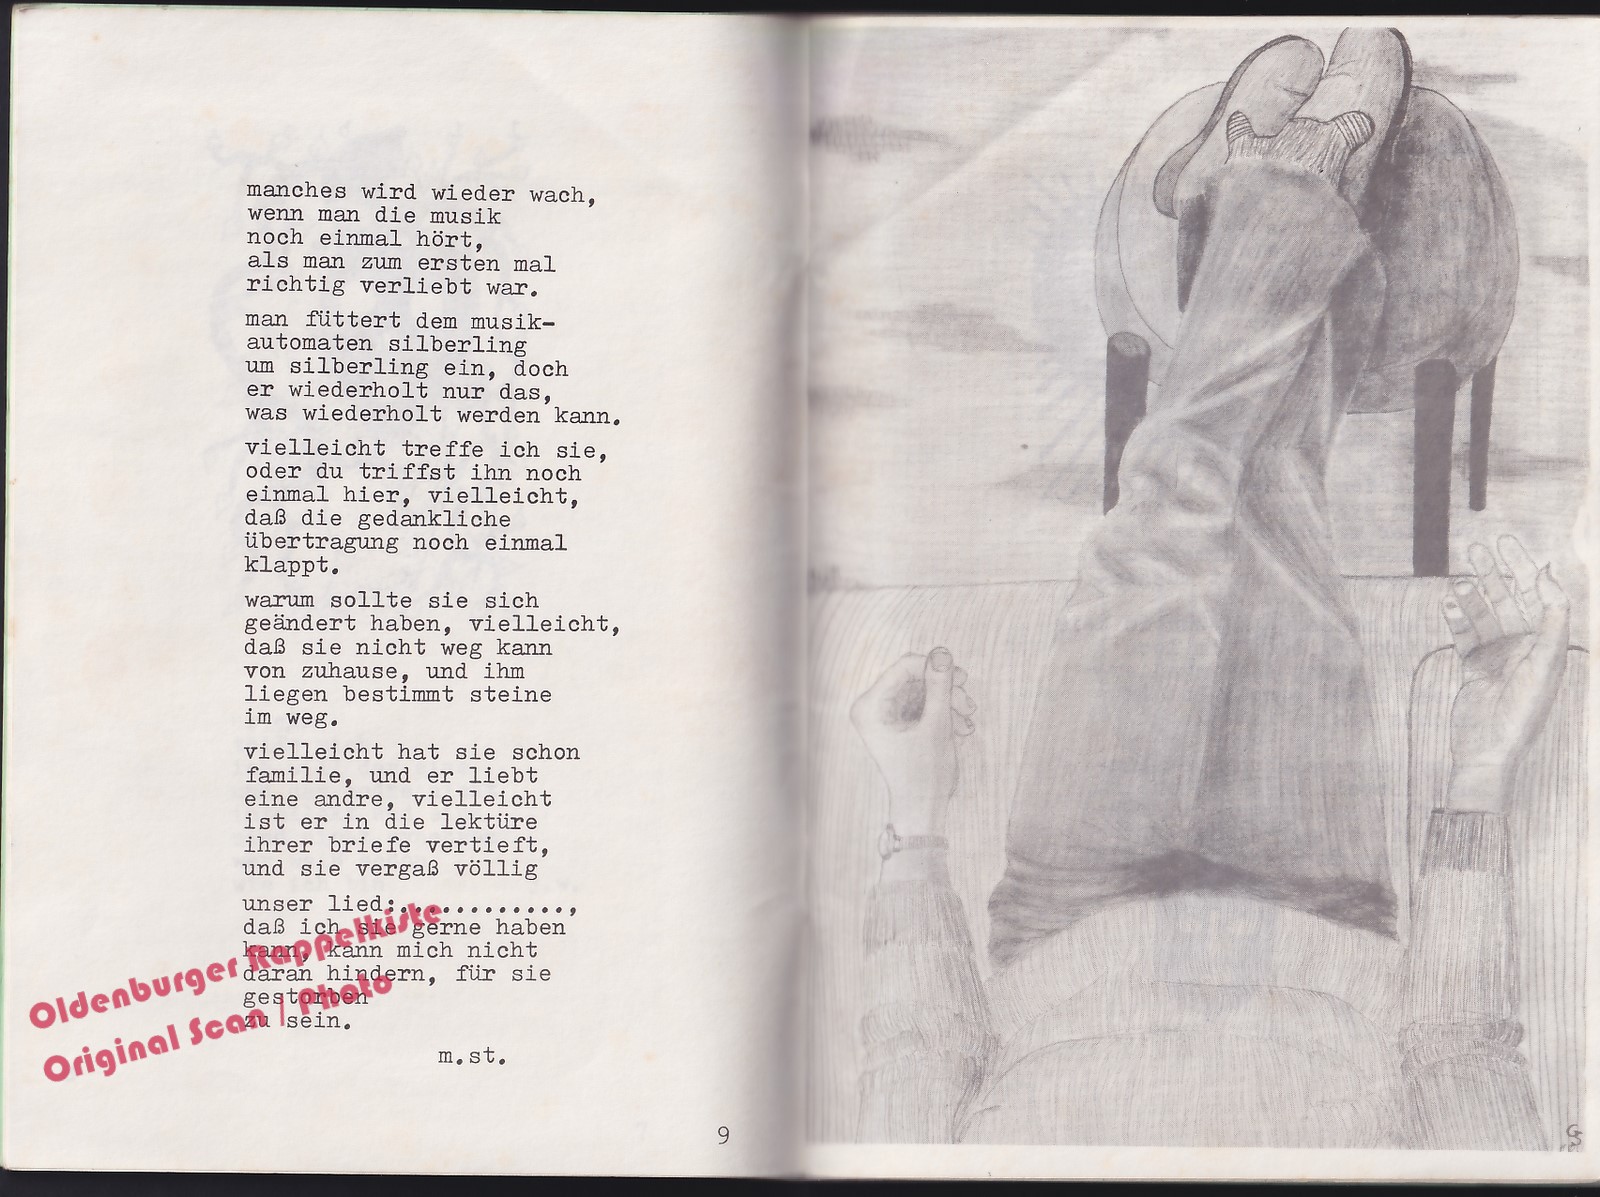 manches wird wieder wach,
wenn man die musik
noch einmal hört,
als man zum ersten mal
richtig verliebt war.
man füttert dem musik-
automaten silberling
um silberling ein, doch
er wiederholt nur das,
was wiederholt werden kann.
vielleicht treffe ich sie,
oder du triffst ihn noch
einmal hier, vielleicht,
daß die gedankliche
übertragung noch einmal
klappt.
warum sollte sie sich
geändert haben, vielleicht,
daß sie nicht weg kann
von zuhause, und ihm
liegen bestimmt steine
im weg.
vielleicht hat sie schon
familie, und er liebt
eine andre, vielleicht
ist er in die lektüre
ihrer briefe vertieft,
und sie vergaß völlig
unser lied:.............,
daß ich sie gerne haben
kann, kann mich nicht
daran hindern, für sie
gestorben
zu sein.
m.st.
9
Oldenburger Rappelkiste
Original Scan / Photo